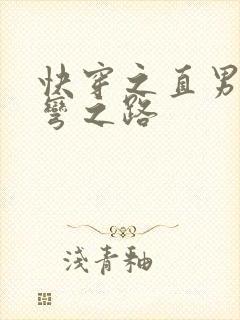 快穿之直男
彎之路
淺青釉